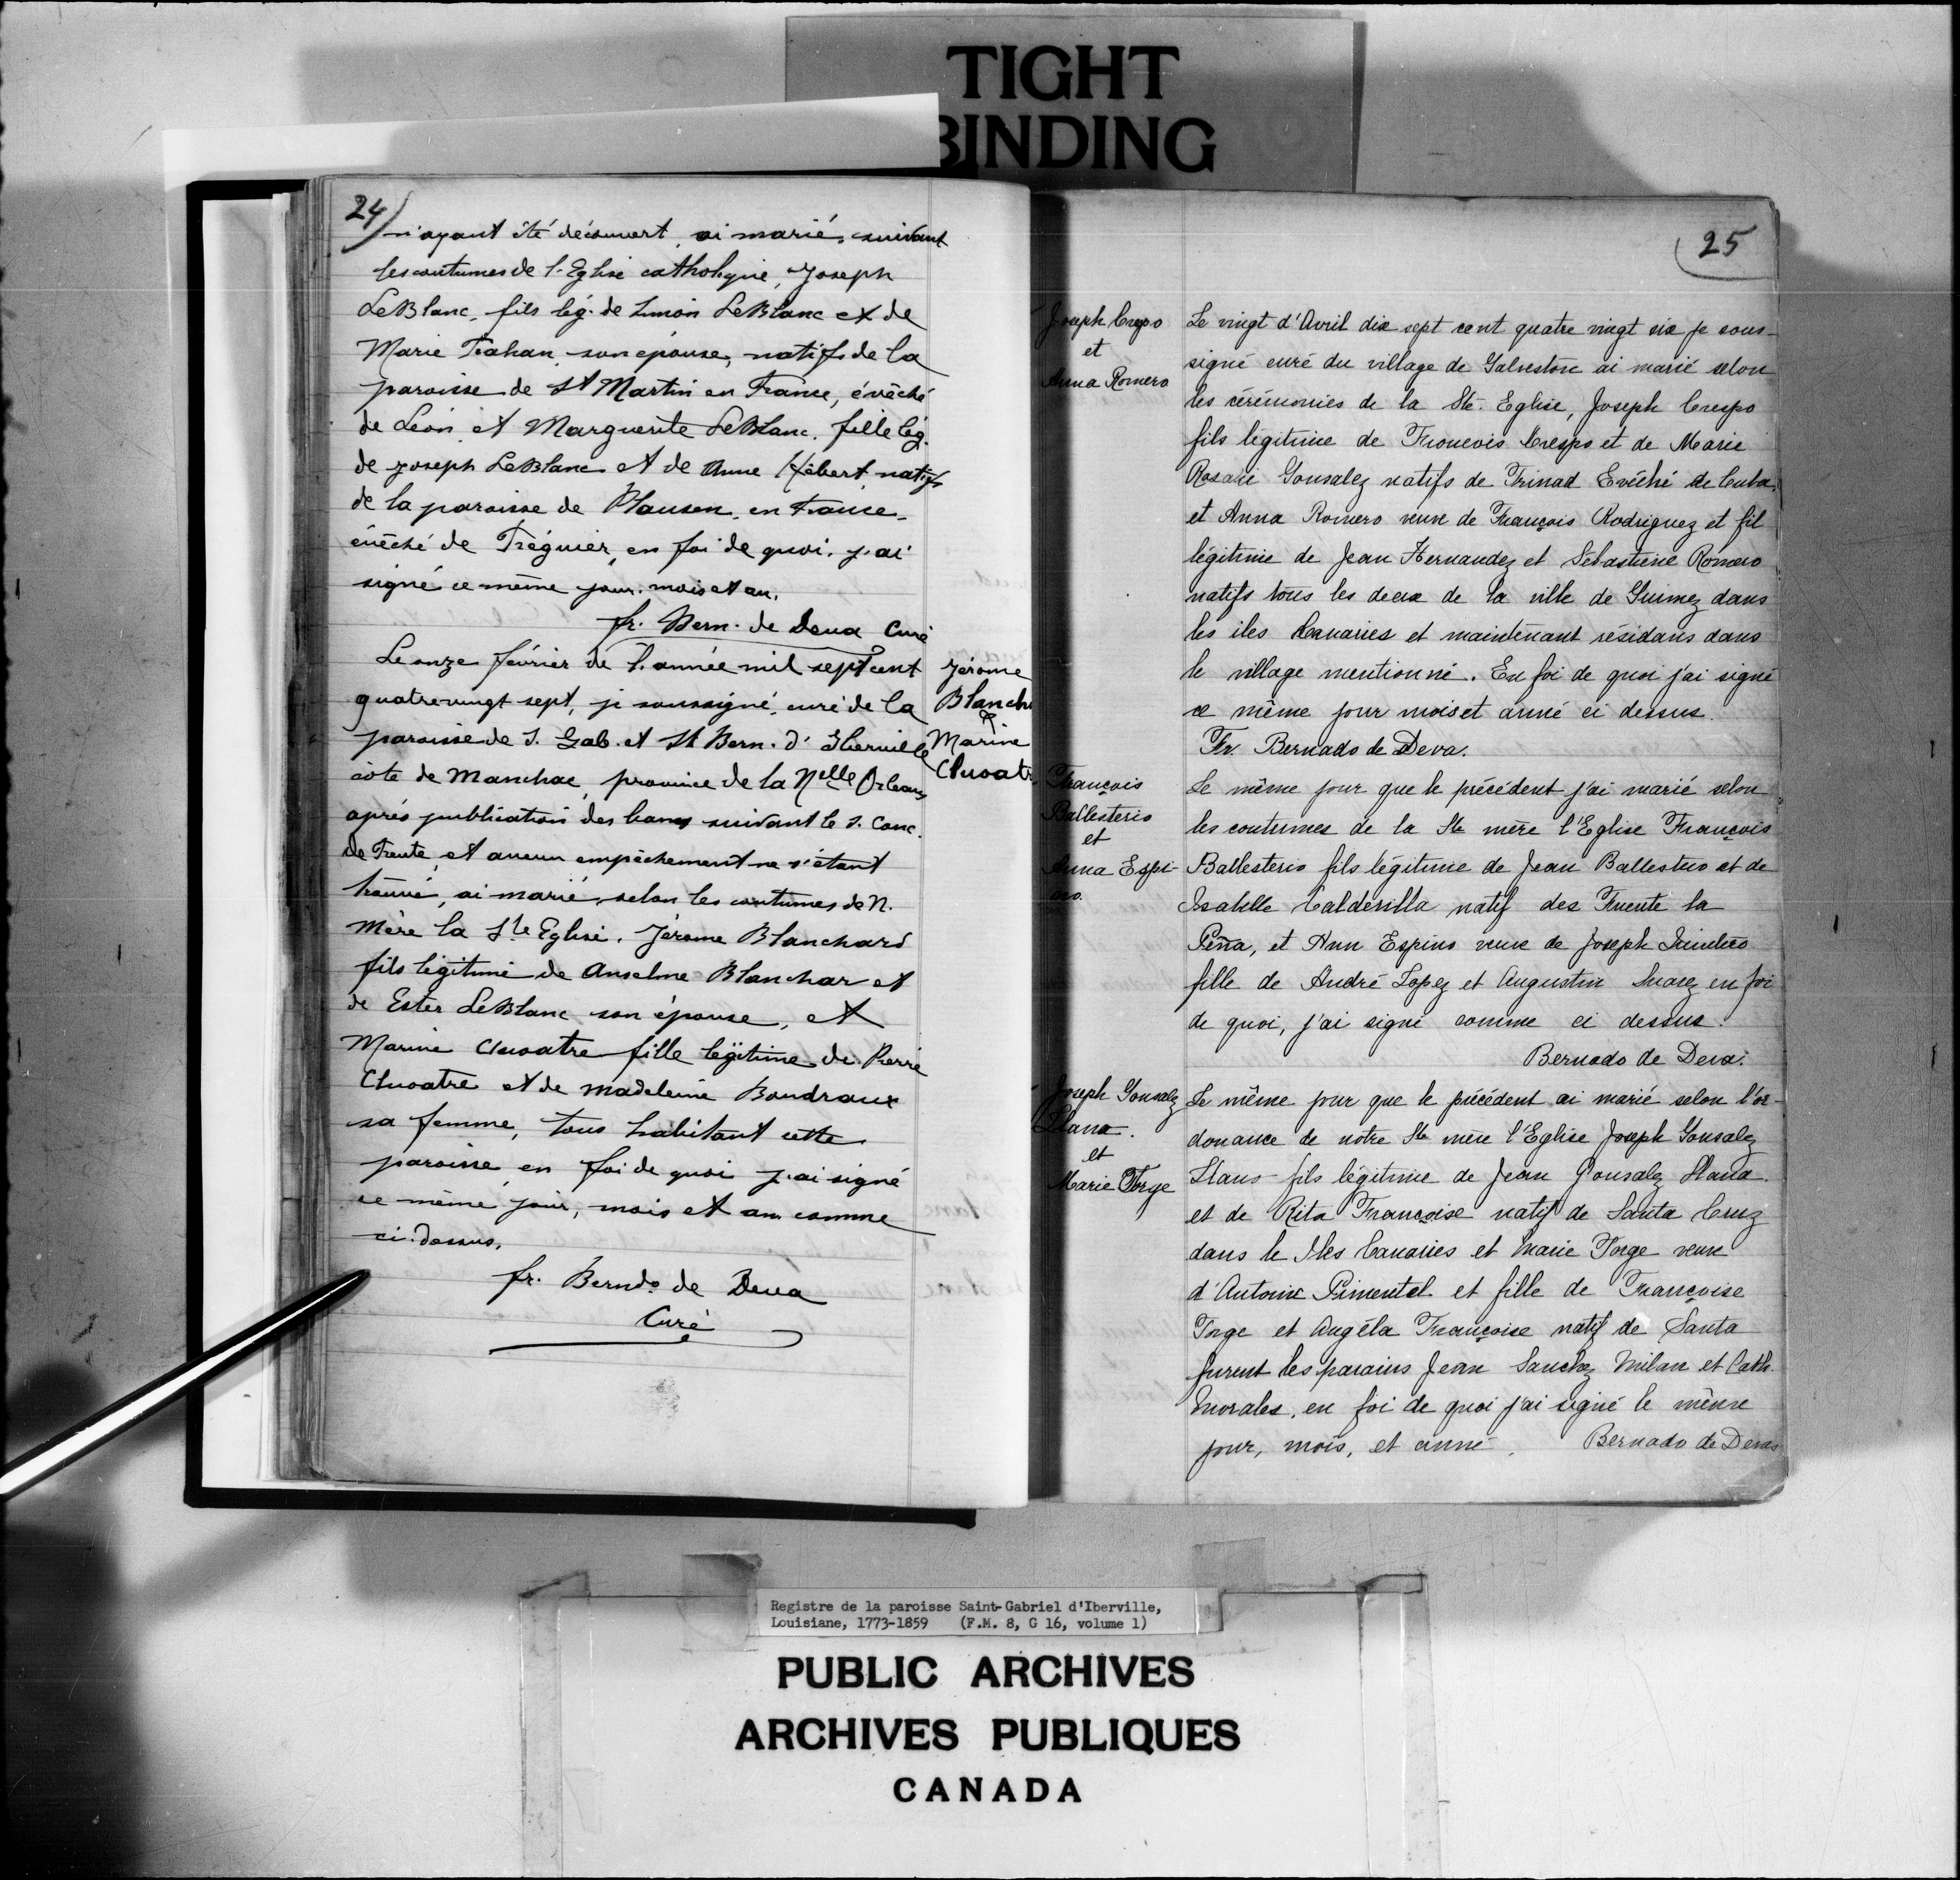 TIGHT
BINDING
24
n'ayant été découvert, ai marié, suivant
les coutumes de l'Eglise catholique, Joseph
LeBlanc, fils lég. de Simon LeBlanc et de
Marie Trahan, son épouse, natifs de la
paroisse de St Martin en France, évêché
de Léon, et Marguerite LeBlanc, fille lég.
de Joseph LeBlanc et de Anne Hébert natifs
de la paroisse de Plausen, en France,
évêché de Tréguier, en foi de quoi, j'ai
signé ce même jour, mois et an.
fr. Bern. de Deva Curé
Le onze février de l'année mil sept cent
quatrevingt sept, je soussigné, curé de la
paroisse de S. Gab. et St Bern. d'Iberville
côte de Manchac, province de la Nelle Orleans
après publication des bancs suivant le S. Conc.
de Trente, et aucun empêchement ne s'étant
trouvé, ai marié, selon les coutumes de N.
Mère la Ste Eglise, Jérome Blanchard
fils légitime de Anselme Blanchar et
de Ester LeBlanc son épouse, et
Marine Cluoatre fille legitime de Pierre
Cluoatre et de Madeleine Boudraux
sa femme, tous habitant cette
paroisse, en foi de quoi j'ai signé
ce même jour, mois et an comme
ci-dessus,
fr. Berndo de Deva
Curé
Jérome
Blanch
&
Marine
Cluoatr
25
Joseph Crespo
et
Anna Romero
Le vingt d'Avril dix sept cent quatre vingt six je sous-
signé curé du village de Galvestone ai marié selon
les cérémonies de la Ste. Eglise, Joseph Crespo
fils légitime de Francois Crespo et de Marie
Rosalie Gonsalez natifs de Trinad Evêché de Cuba,
et Anna Romero veuve de François Rodriguez et fil
légitime de Jean Hernandez et Sébastiene Romero
natifs tous les deux de la ville de Guimez dans
les iles Canaries et maintenant résidans dans
le village mentionné. En foi de quoi j'ai signé
ce même jour mois et anné ci dessus.
Fr. Bernado de Deva.
François
Ballesterio
et
Anna Espi-
no.
Le même jour que le précédent j'ai marié selon
les coutumes de la Ste mère l'Eglise François
Ballesterio fils légitime de Jean Ballesterio et de
Isabelle Calderilla natif des Fuente la
Peña, et Ann Espino veuve de Joseph
fille de André Lopez et Augustin Suarez en foi
de quoi, j'ai signé comme ci dessus.
Bernado de Deva.
Joseph Gonsalez
Llana.
et
Marie Torge
Le même jour que le précédent ai marié selon l'or-
donance de notre Ste mère l'Eglise Joseph Gonsalez
Llano fils légitime de Jean Gonsalez Llana
et de Rita Françoise natif de Santa Cruz
dans le Iles Canaries et Marie Torge veuve
d'Antoine Pimentel et fille de Françoise
Torge et Angéla Françoise natif de Santa
furent les parains Jean Sanchez Milan et Cath.
Morales, en foi de quoi j'ai signé le même
jour, mois, et anné. Bernado de Devas
Registre de la paroisse Saint-Gabriel d'Iberville,
Louisiane, 1773-1859 (F.M. 8, G 16, volume 1)
PUBLIC ARCHIVES
ARCHIVES PUBLIQUES
CANADA